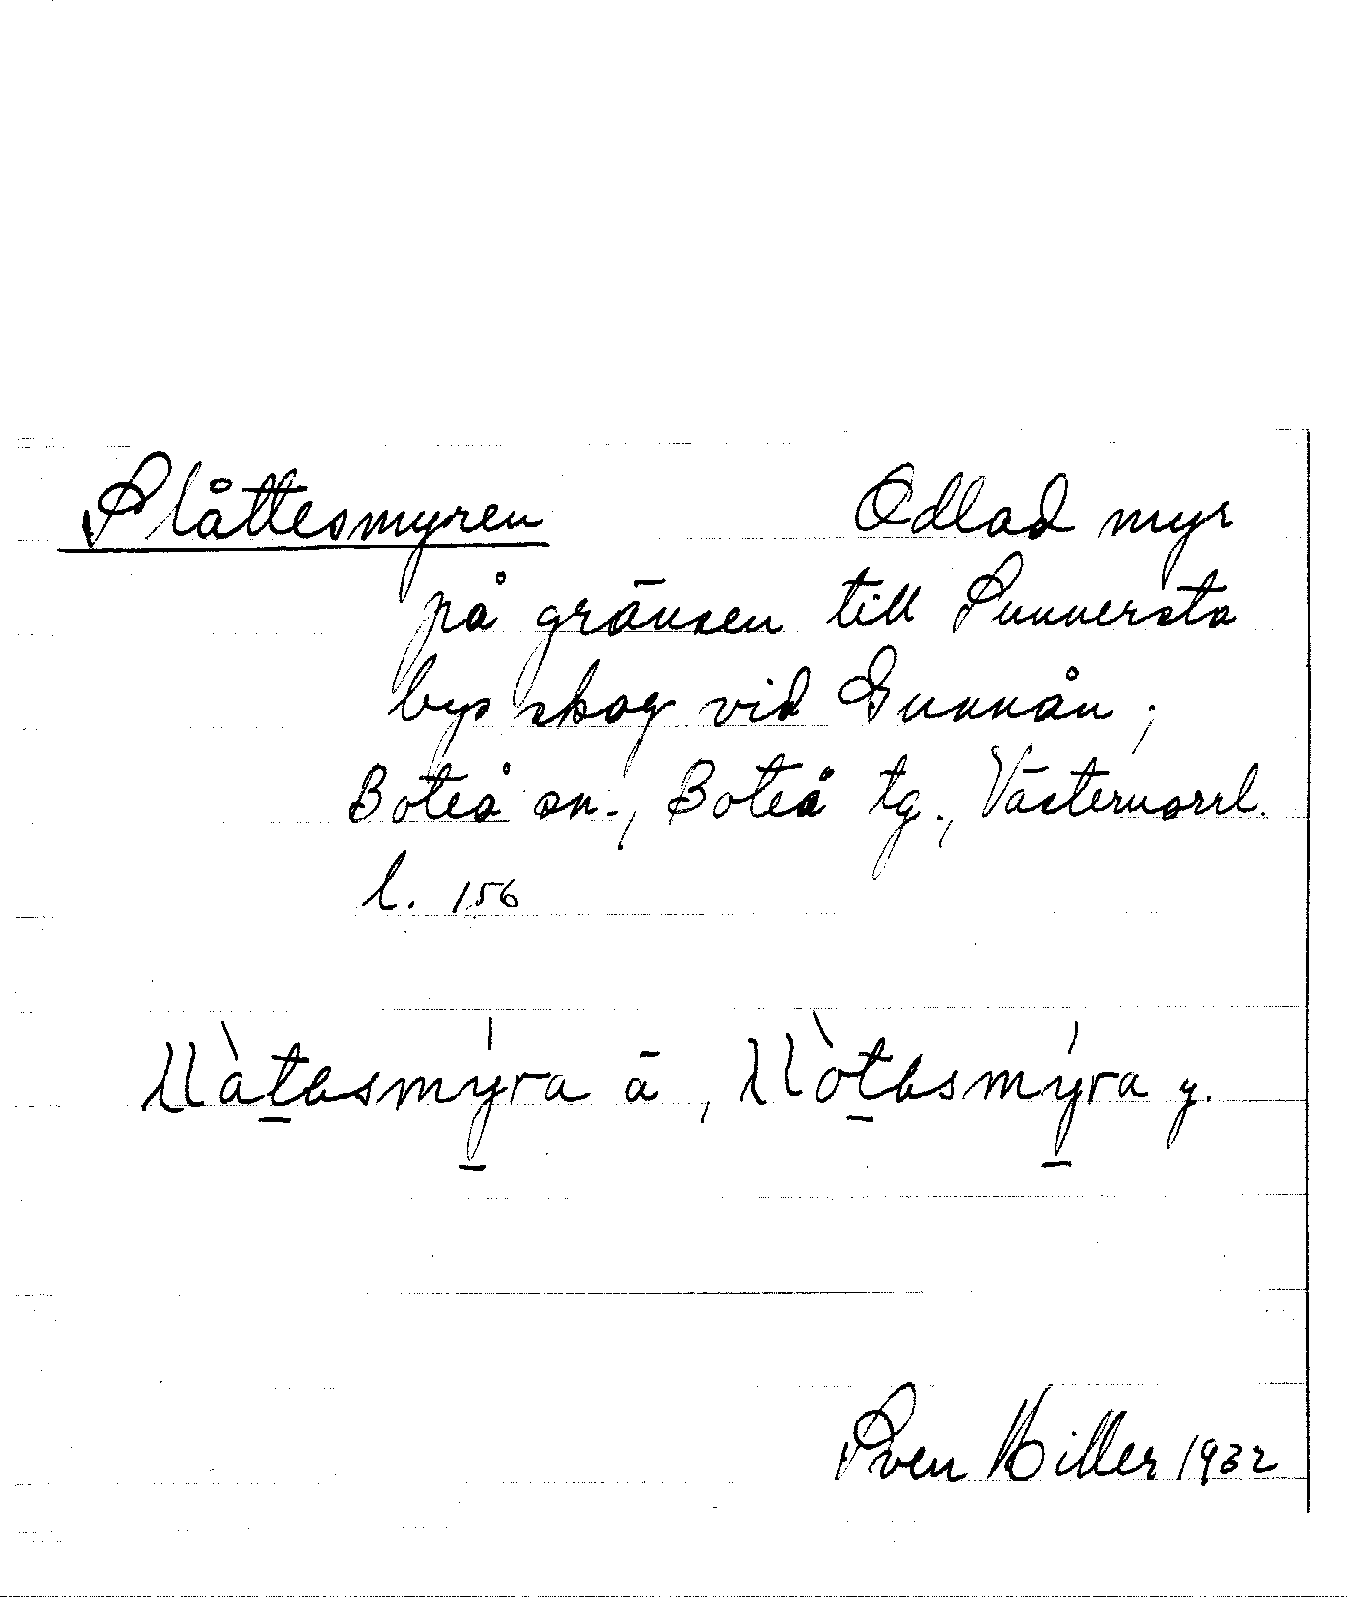 Slåttesmyren Odlad myr
på gränsen till Sunnersta
bys skog vid Gunnån;
Boteå sn., Boteå tg., Västernorrl.
l. 156
ā, y.
Sven Hiller 1932